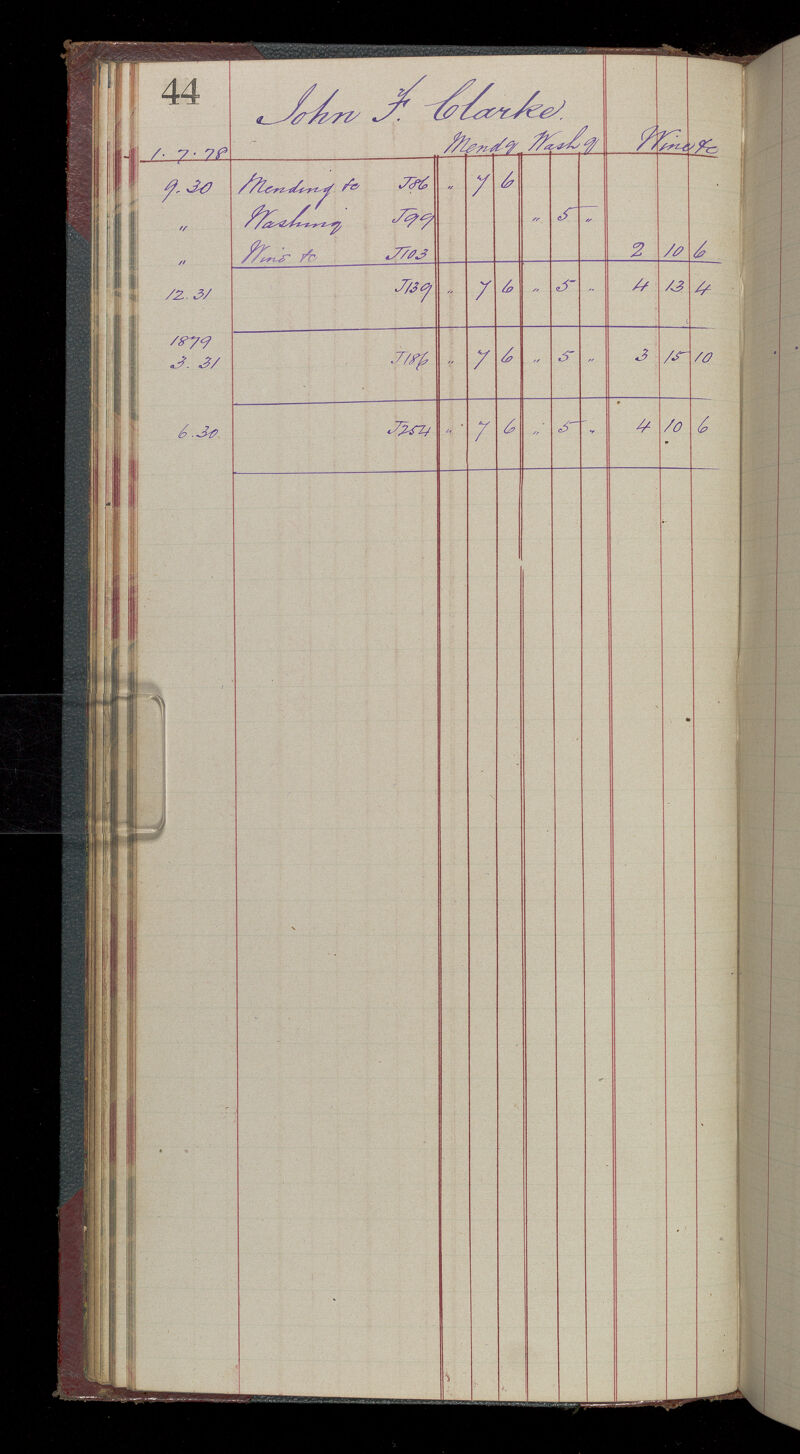 44
John F. Clarke.
1.7.78 Mendg Washg Wine &c
9.30 Mending &c J86 " 7 6
" Washing J99 " 5 "
" Wine &c J103 2 10 6
12.31 J139 " 7 6 " 5 " 4 13 4
1879
3.31 J186 " 7 6 " 5 " 3 15 10
6.30. J254 " 7 6 " 5 " 4 10 6